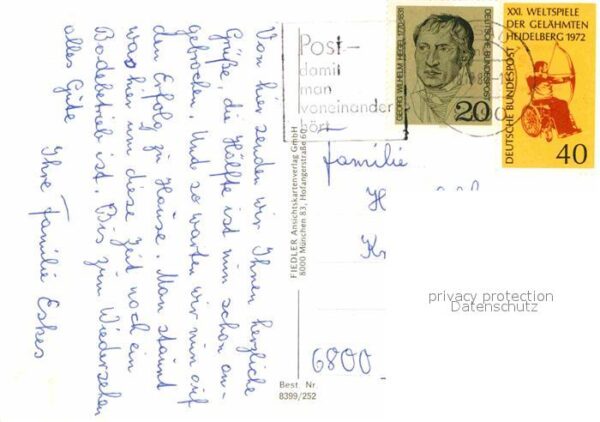 Von hier senden wir Ihnen herzliche
Grüße, die Hälfte ist nun schon an-
gebrochen. Und so warten wir nun auf
den Erfolg zu Hause. Man staunt
was hier um diese Zeit noch ein
Badebetrieb ist. Bis zum Wiedersehen
alles Gute
Ihre Familie Eskes
Post-
damit
man
voneinander
hört
GEORG WILHELM HEGEL 1770-1831
DEUTSCHE BUNDESPOST
20
XXI. WELTSPIELE
DER GELÄHMTEN
HEIDELBERG 1972
DEUTSCHE BUNDESPOST
40
Familie
H
K
6800
FIEDLER Ansichtskartenverlag GmbH
8000 München 83, Hofangerstraße 60
Best Nr.
8399/252
privacy protection
Datenschutz